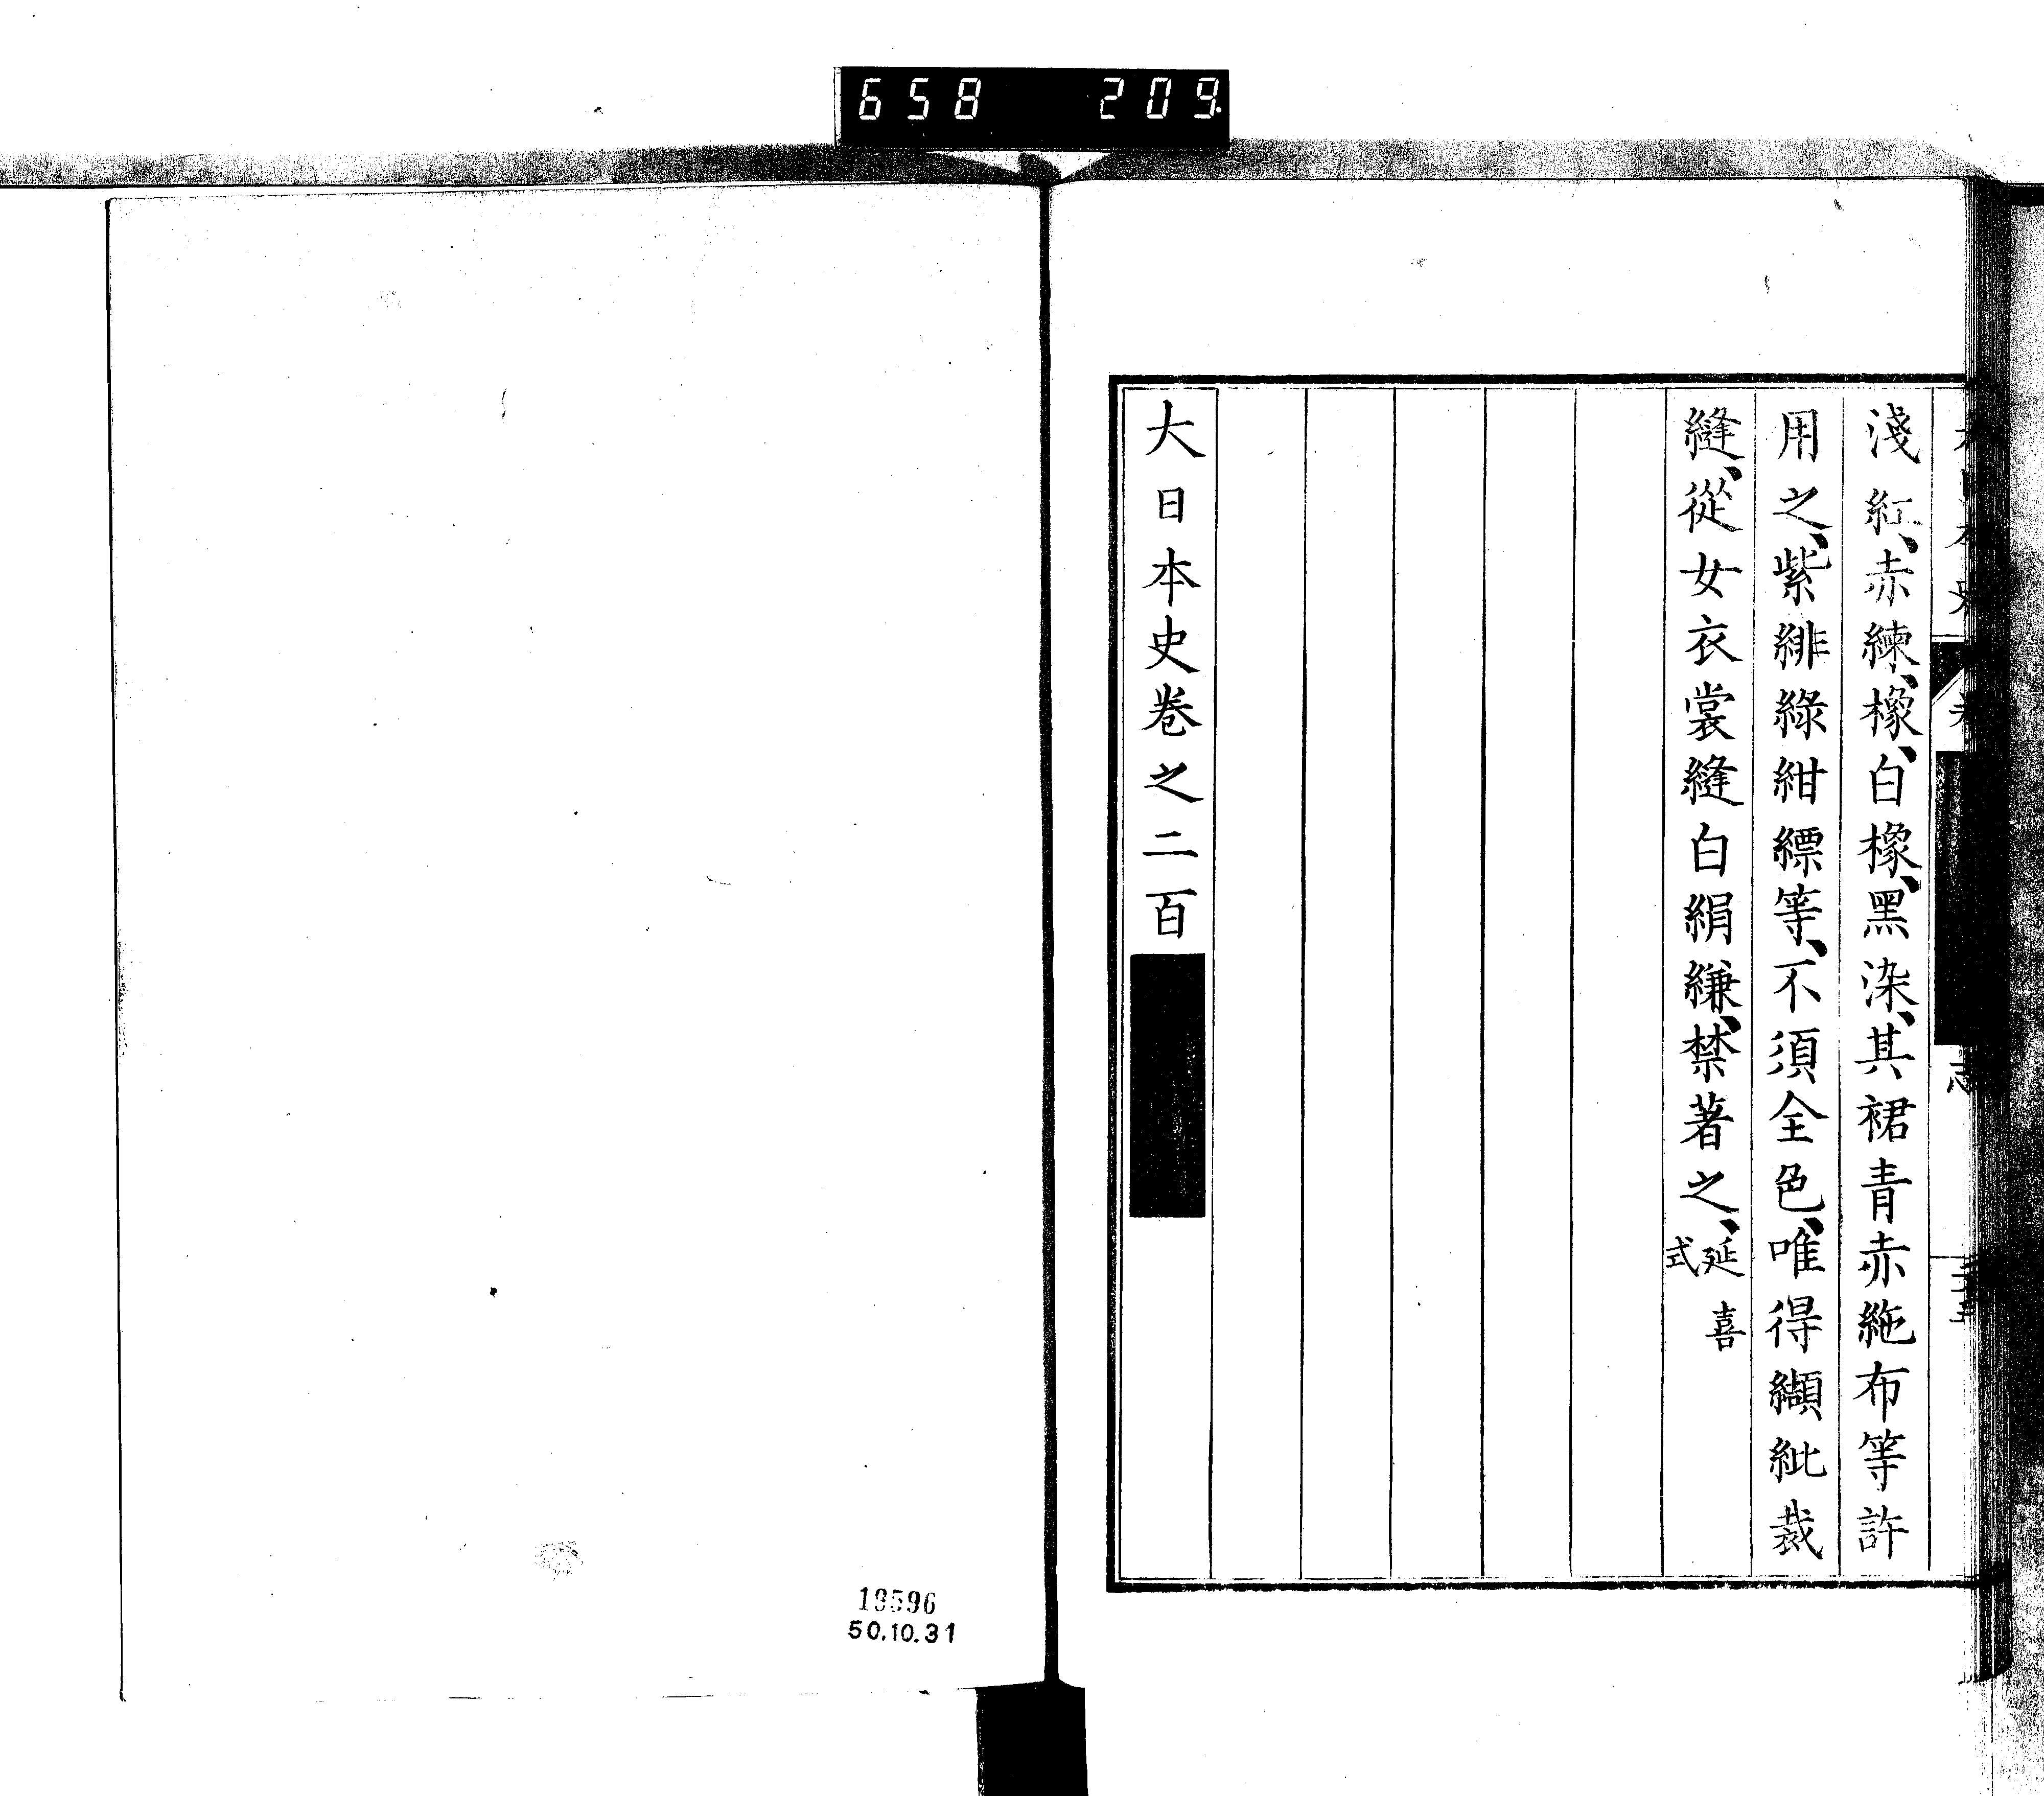 658 209.
淺紅、赤練、橡、白橡、黑染、其裙青赤絁布等許
用之、紫緋綠紺縹等、不須全色、唯得纈紕裁
縫、從女衣裳縫白絹縑、禁著之、延喜式
大日本史卷之二百
19596
50.10.31